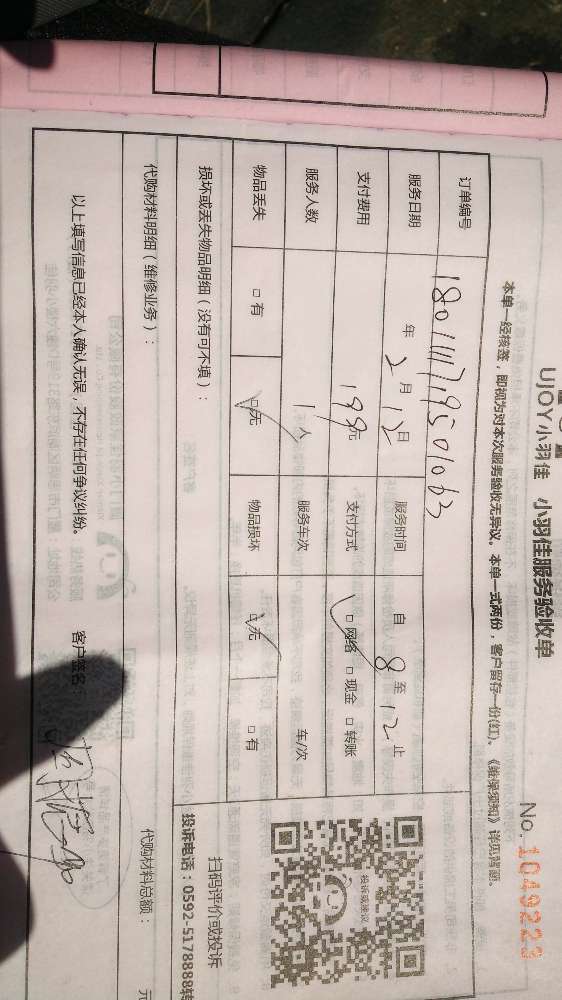 UJOY小羽佳 小羽佳服务验收单
No. 1049223
本单一经核签，即视为对本次服务验收无异议。本单一式两份，客户留存一份(红)、《维保须知》详见背面
订单编号
服务日期 年 2 月 12 日 服务时间 自 8 至 12 止
支付费用 199 元 支付方式 □网络 □现金 □转账
服务人数 1 人 服务车次 车/次
物品丢失 □有 □无 物品损坏 □无 □有
扫码评价或投诉
损坏或丢失物品明细（没有可不填）：
投诉电话：0592-5178888转
代购材料明细（维修业务）： 代购材料总额： 元
以上填写信息已经本人确认无误，不存在任何争议纠纷。 客户签名：